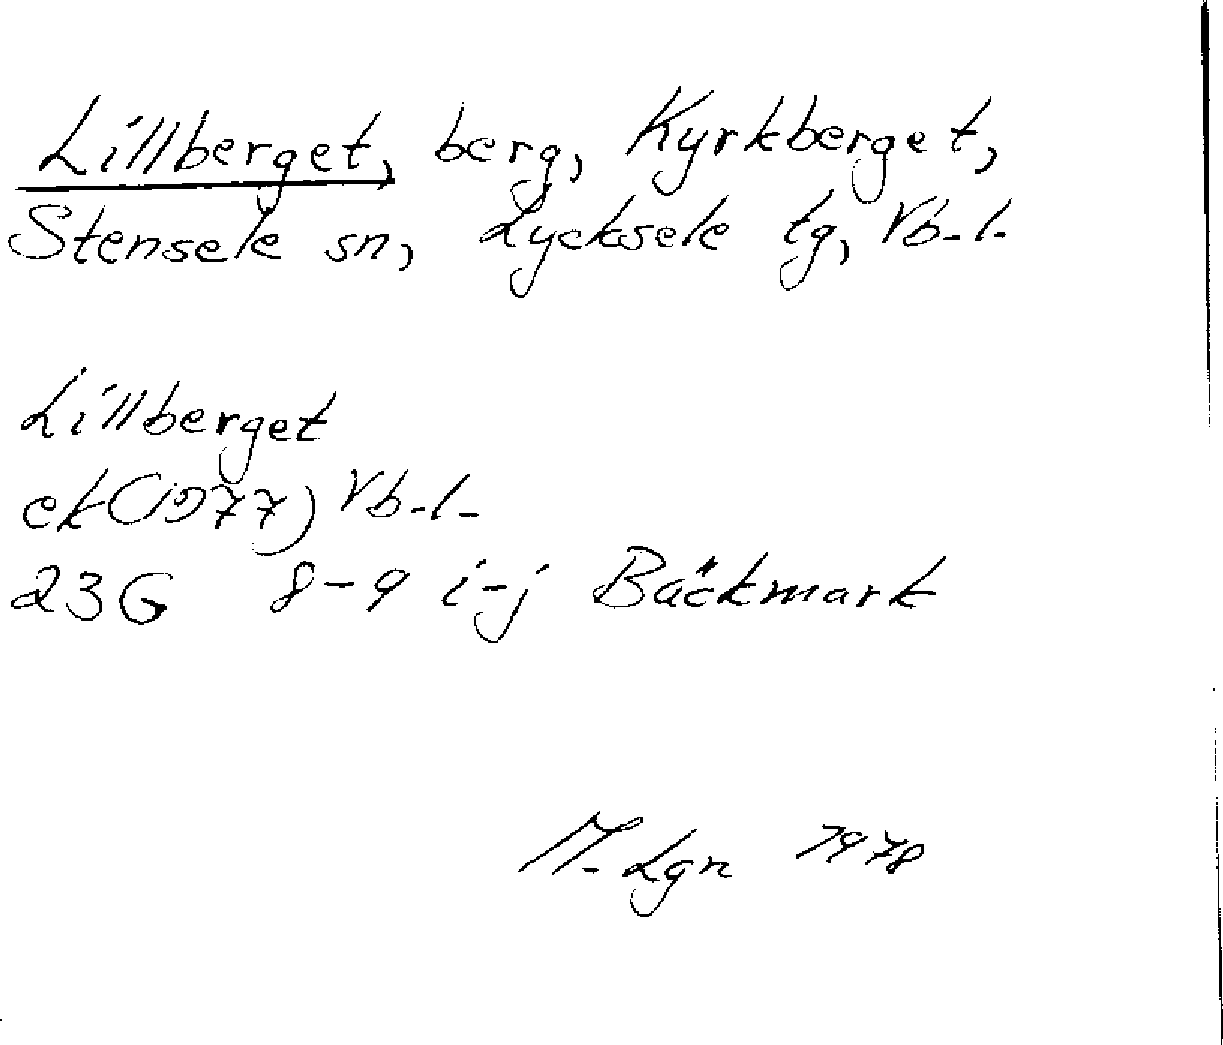 Lillberget, berg, Kyrkberget,
Stensele sn, Lycksele lg, Vb.l.
Lillberget
ek (1977) Vb.l.
23G 8-9 i-j Bäckmark
M. Lgn 1978